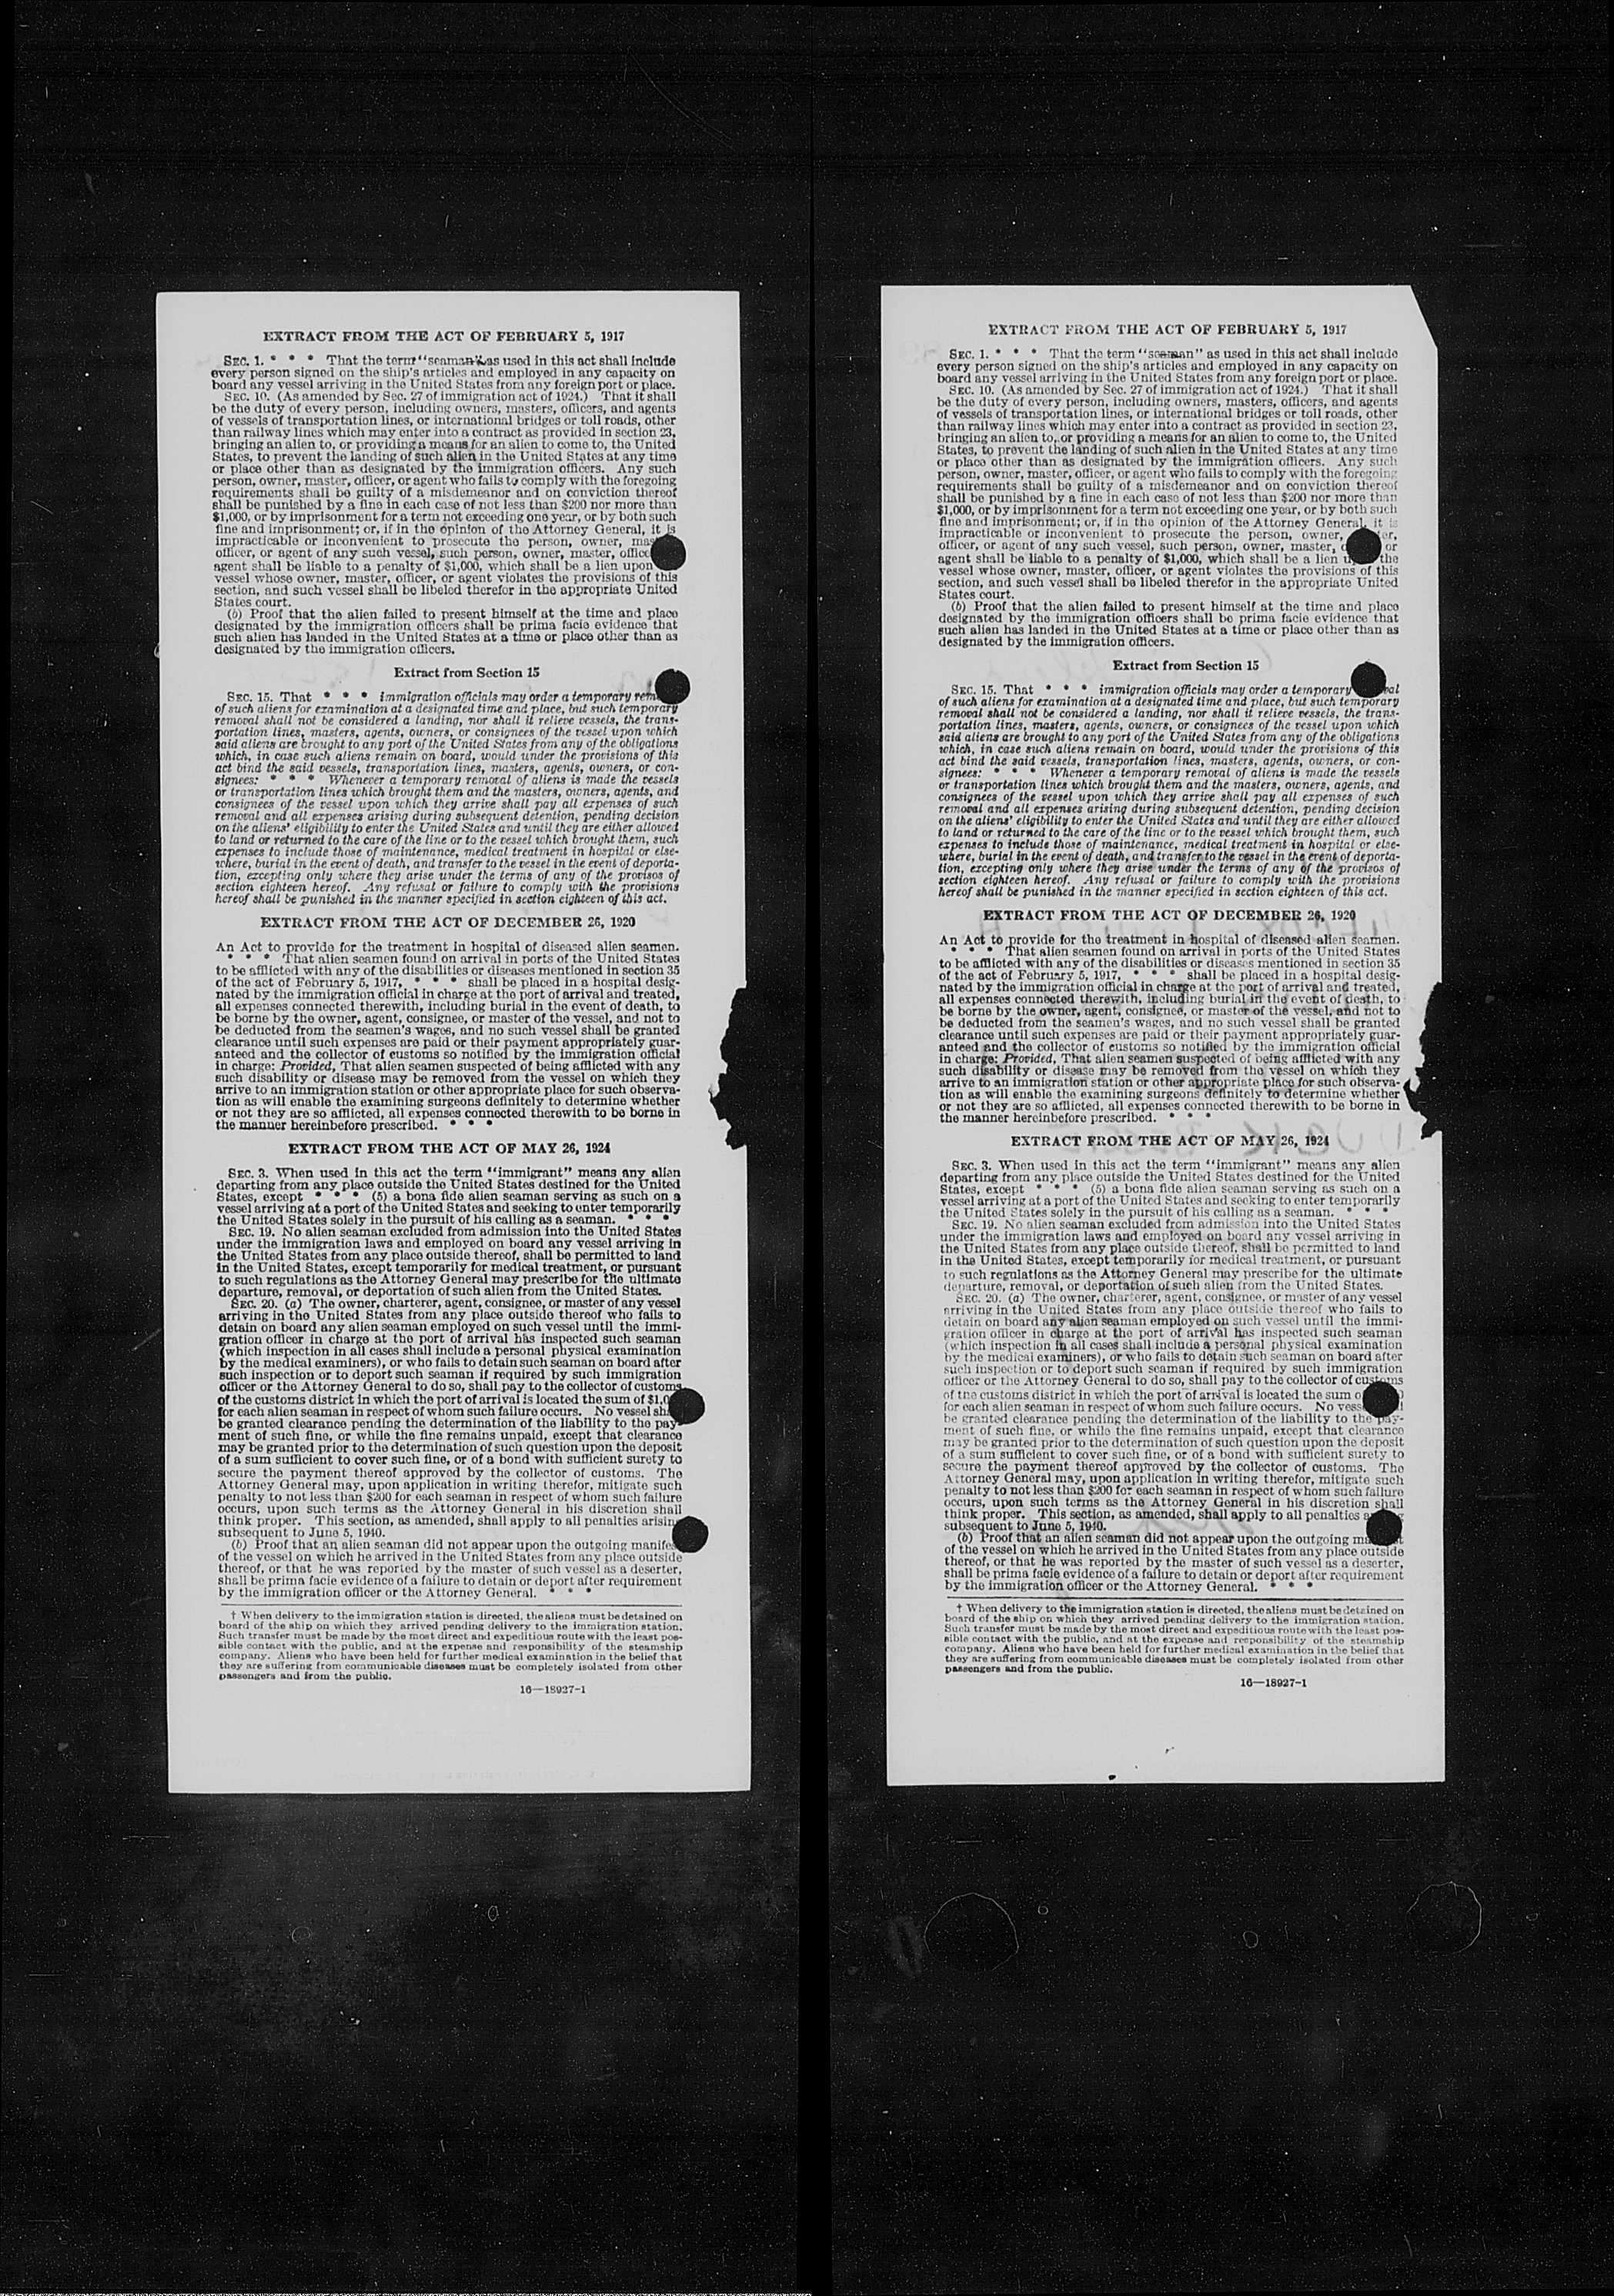 EXTRACT FROM THE ACT OF FEBRUARY 5, 1917
SEC. 1. * * * That the term "seaman" as used in this act shall include
every person signed on the ship's articles and employed in any capacity on
board any vessel arriving in the United States from any foreign port or place.
SEC. 10. (As amended by Sec. 27 of immigration act of 1924.) That it shall
be the duty of every person, including owners, masters, officers, and agents
of vessels of transportation lines, or international bridges or toll roads, other
than railway lines which may enter into a contract as provided in section 23,
bringing an alien to, or providing a means for an alien to come to, the United
States, to prevent the landing of such alien in the United States at any time
or place other than as designated by the immigration officers. Any such
person, owner, master, officer, or agent who fails to comply with the foregoing
requirements shall be guilty of a misdemeanor and on conviction thereof
shall be punished by a fine in each case of not less than $200 nor more than
$1,000, or by imprisonment for a term not exceeding one year, or by both such
fine and imprisonment; or, if in the opinion of the Attorney General, it is
impracticable or inconvenient to prosecute the person, owner, mas
officer, or agent of any such vessel, such person, owner, master, office
agent shall be liable to a penalty of $1,000, which shall be a lien upon
vessel whose owner, master, officer, or agent violates the provisions of this
section, and such vessel shall be libeled therefor in the appropriate United
States court.
(b) Proof that the alien failed to present himself at the time and place
designated by the immigration officers shall be prima facie evidence that
such alien has landed in the United States at a time or place other than as
designated by the immigration officers.
Extract from Section 15
SEC. 15. That * * * immigration officials may order a temporary rem
of such aliens for examination at a designated time and place, but such temporary
removal shall not be considered a landing, nor shall it relieve vessels, the trans-
portation lines, masters, agents, owners, or consignees of the vessel upon which
said aliens are brought to any port of the United States from any of the obligations
which, in case such aliens remain on board, would under the provisions of this
act bind the said vessels, transportation lines, masters, agents, owners, or con-
signees: * * * Whenever a temporary removal of aliens is made the vessels
or transportation lines which brought them and the masters, owners, agents, and
consignees of the vessel upon which they arrive shall pay all expenses of such
removal and all expenses arising during subsequent detention, pending decision
on the aliens' eligibility to enter the United States and until they are either allowed
to land or returned to the care of the line or to the vessel which brought them, such
expenses to include those of maintenance, medical treatment in hospital or else-
where, burial in the event of death, and transfer to the vessel in the event of deporta-
tion, excepting only where they arise under the terms of any of the provisos of
section eighteen hereof. Any refusal or failure to comply with the provisions
hereof shall be punished in the manner specified in section eighteen of this act.
EXTRACT FROM THE ACT OF DECEMBER 26, 1920
An Act to provide for the treatment in hospital of diseased alien seamen.
* * * That alien seamen found on arrival in ports of the United States
to be afflicted with any of the disabilities or diseases mentioned in section 35
of the act of February 5, 1917, * * * shall be placed in a hospital desig-
nated by the immigration official in charge at the port of arrival and treated,
all expenses connected therewith, including burial in the event of death, to
be borne by the owner, agent, consignee, or master of the vessel, and not to
be deducted from the seamen's wages, and no such vessel shall be granted
clearance until such expenses are paid or their payment appropriately guar-
anteed and the collector of customs so notified by the immigration official
in charge: Provided, That alien seamen suspected of being afflicted with any
such disability or disease may be removed from the vessel on which they
arrive to an immigration station or other appropriate place for such observa-
tion as will enable the examining surgeons definitely to determine whether
or not they are so afflicted, all expenses connected therewith to be borne in
the manner hereinbefore prescribed. * * *
EXTRACT FROM THE ACT OF MAY 26, 1924
SEC. 3. When used in this act the term "immigrant" means any alien
departing from any place outside the United States destined for the United
States, except * * * (5) a bona fide alien seaman serving as such on a
vessel arriving at a port of the United States and seeking to enter temporarily
the United States solely in the pursuit of his calling as a seaman. * * *
SEC. 19. No alien seaman excluded from admission into the United States
under the immigration laws and employed on board any vessel arriving in
the United States from any place outside thereof, shall be permitted to land
in the United States, except temporarily for medical treatment, or pursuant
to such regulations as the Attorney General may prescribe for the ultimate
departure, removal, or deportation of such alien from the United States.
SEC. 20. (a) The owner, charterer, agent, consignee, or master of any vessel
arriving in the United States from any place outside thereof who fails to
detain on board any alien seaman employed on such vessel until the immi-
gration officer in charge at the port of arrival has inspected such seaman
(which inspection in all cases shall include a personal physical examination
by the medical examiners), or who fails to detain such seaman on board after
such inspection or to deport such seaman if required by such immigration
officer or the Attorney General to do so, shall pay to the collector of customs
of the customs district in which the port of arrival is located the sum of $1,0
for each alien seaman in respect of whom such failure occurs. No vessel sh
be granted clearance pending the determination of the liability to the pay-
ment of such fine, or while the fine remains unpaid, except that clearance
may be granted prior to the determination of such question upon the deposit
of a sum sufficient to cover such fine, or of a bond with sufficient surety to
secure the payment thereof approved by the collector of customs. The
Attorney General may, upon application in writing therefor, mitigate such
penalty to not less than $200 for each seaman in respect of whom such failure
occurs, upon such terms as the Attorney General in his discretion shall
think proper. This section, as amended, shall apply to all penalties arising
subsequent to June 5, 1940.
(b) Proof that an alien seaman did not appear upon the outgoing manifes
of the vessel on which he arrived in the United States from any place outside
thereof, or that he was reported by the master of such vessel as a deserter,
shall be prima facie evidence of a failure to detain or deport after requirement
by the immigration officer or the Attorney General. * * *
† When delivery to the immigration station is directed, the aliens must be detained on
board of the ship on which they arrived pending delivery to the immigration station.
Such transfer must be made by the most direct and expeditious route with the least pos-
sible contact with the public, and at the expense and responsibility of the steamship
company. Aliens who have been held for further medical examination in the belief that
they are suffering from communicable diseases must be completely isolated from other
passengers and from the public.
16—18927-1
EXTRACT FROM THE ACT OF FEBRUARY 5, 1917
SEC. 1. * * * That the term "seaman" as used in this act shall include
every person signed on the ship's articles and employed in any capacity on
board any vessel arriving in the United States from any foreign port or place.
SEC. 10. (As amended by Sec. 27 of immigration act of 1924.) That it shall
be the duty of every person, including owners, masters, officers, and agents
of vessels of transportation lines, or international bridges or toll roads, other
than railway lines which may enter into a contract as provided in section 23,
bringing an alien to, or providing a means for an alien to come to, the United
States, to prevent the landing of such alien in the United States at any time
or place other than as designated by the immigration officers. Any such
person, owner, master, officer, or agent who fails to comply with the foregoing
requirements shall be guilty of a misdemeanor and on conviction thereof
shall be punished by a fine in each case of not less than $200 nor more than
$1,000, or by imprisonment for a term not exceeding one year, or by both such
fine and imprisonment; or, if in the opinion of the Attorney General, it is
impracticable or inconvenient to prosecute the person, owner, er,
officer, or agent of any such vessel, such person, owner, master, or
agent shall be liable to a penalty of $1,000, which shall be a lien u the
vessel whose owner, master, officer, or agent violates the provisions of this
section, and such vessel shall be libeled therefor in the appropriate United
States court.
(b) Proof that the alien failed to present himself at the time and place
designated by the immigration officers shall be prima facie evidence that
such alien has landed in the United States at a time or place other than as
designated by the immigration officers.
Extract from Section 15
SEC. 15. That * * * immigration officials may order a temporary val
of such aliens for examination at a designated time and place, but such temporary
removal shall not be considered a landing, nor shall it relieve vessels, the trans-
portation lines, masters, agents, owners, or consignees of the vessel upon which
said aliens are brought to any port of the United States from any of the obligations
which, in case such aliens remain on board, would under the provisions of this
act bind the said vessels, transportation lines, masters, agents, owners, or con-
signees: * * * Whenever a temporary removal of aliens is made the vessels
or transportation lines which brought them and the masters, owners, agents, and
consignees of the vessel upon which they arrive shall pay all expenses of such
removal and all expenses arising during subsequent detention, pending decision
on the aliens' eligibility to enter the United States and until they are either allowed
to land or returned to the care of the line or to the vessel which brought them, such
expenses to include those of maintenance, medical treatment in hospital or else-
where, burial in the event of death, and transfer to the vessel in the event of deporta-
tion, excepting only where they arise under the terms of any of the provisos of
section eighteen hereof. Any refusal or failure to comply with the provisions
hereof shall be punished in the manner specified in section eighteen of this act.
EXTRACT FROM THE ACT OF DECEMBER 26, 1920
An Act to provide for the treatment in hospital of diseased alien seamen.
* * * That alien seamen found on arrival in ports of the United States
to be afflicted with any of the disabilities or diseases mentioned in section 35
of the act of February 5, 1917, * * * shall be placed in a hospital desig-
nated by the immigration official in charge at the port of arrival and treated,
all expenses connected therewith, including burial in the event of death, to
be borne by the owner, agent, consignee, or master of the vessel, and not to
be deducted from the seamen's wages, and no such vessel shall be granted
clearance until such expenses are paid or their payment appropriately guar-
anteed and the collector of customs so notified by the immigration official
in charge: Provided, That alien seamen suspected of being afflicted with any
such disability or disease may be removed from the vessel on which they
arrive to an immigration station or other appropriate place for such observa-
tion as will enable the examining surgeons definitely to determine whether
or not they are so afflicted, all expenses connected therewith to be borne in
the manner hereinbefore prescribed. * * *
EXTRACT FROM THE ACT OF MAY 26, 1924
SEC. 3. When used in this act the term "immigrant" means any alien
departing from any place outside the United States destined for the United
States, except * * * (5) a bona fide alien seaman serving as such on a
vessel arriving at a port of the United States and seeking to enter temporarily
the United States solely in the pursuit of his calling as a seaman. * * *
SEC. 19. No alien seaman excluded from admission into the United States
under the immigration laws and employed on board any vessel arriving in
the United States from any place outside thereof, shall be permitted to land
in the United States, except temporarily for medical treatment, or pursuant
to such regulations as the Attorney General may prescribe for the ultimate
departure, removal, or deportation of such alien from the United States.
SEC. 20. (a) The owner, charterer, agent, consignee, or master of any vessel
arriving in the United States from any place outside thereof who fails to
detain on board any alien seaman employed on such vessel until the immi-
gration officer in charge at the port of arrival has inspected such seaman
(which inspection in all cases shall include a personal physical examination
by the medical examiners), or who fails to detain such seaman on board after
such inspection or to deport such seaman if required by such immigration
officer or the Attorney General to do so, shall pay to the collector of customs
of the customs district in which the port of arrival is located the sum o
for each alien seaman in respect of whom such failure occurs. No vess
be granted clearance pending the determination of the liability to the pay-
ment of such fine, or while the fine remains unpaid, except that clearance
may be granted prior to the determination of such question upon the deposit
of a sum sufficient to cover such fine, or of a bond with sufficient surety to
secure the payment thereof approved by the collector of customs. The
Attorney General may, upon application in writing therefor, mitigate such
penalty to not less than $200 for each seaman in respect of whom such failure
occurs, upon such terms as the Attorney General in his discretion shall
think proper. This section, as amended, shall apply to all penalties a
subsequent to June 5, 1940.
(b) Proof that an alien seaman did not appear upon the outgoing ma
of the vessel on which he arrived in the United States from any place outside
thereof, or that he was reported by the master of such vessel as a deserter,
shall be prima facie evidence of a failure to detain or deport after requirement
by the immigration officer or the Attorney General. * * *
† When delivery to the immigration station is directed, the aliens must be detained on
board of the ship on which they arrived pending delivery to the immigration station.
Such transfer must be made by the most direct and expeditious route with the least pos-
sible contact with the public, and at the expense and responsibility of the steamship
company. Aliens who have been held for further medical examination in the belief that
they are suffering from communicable diseases must be completely isolated from other
passengers and from the public.
16—18927-1